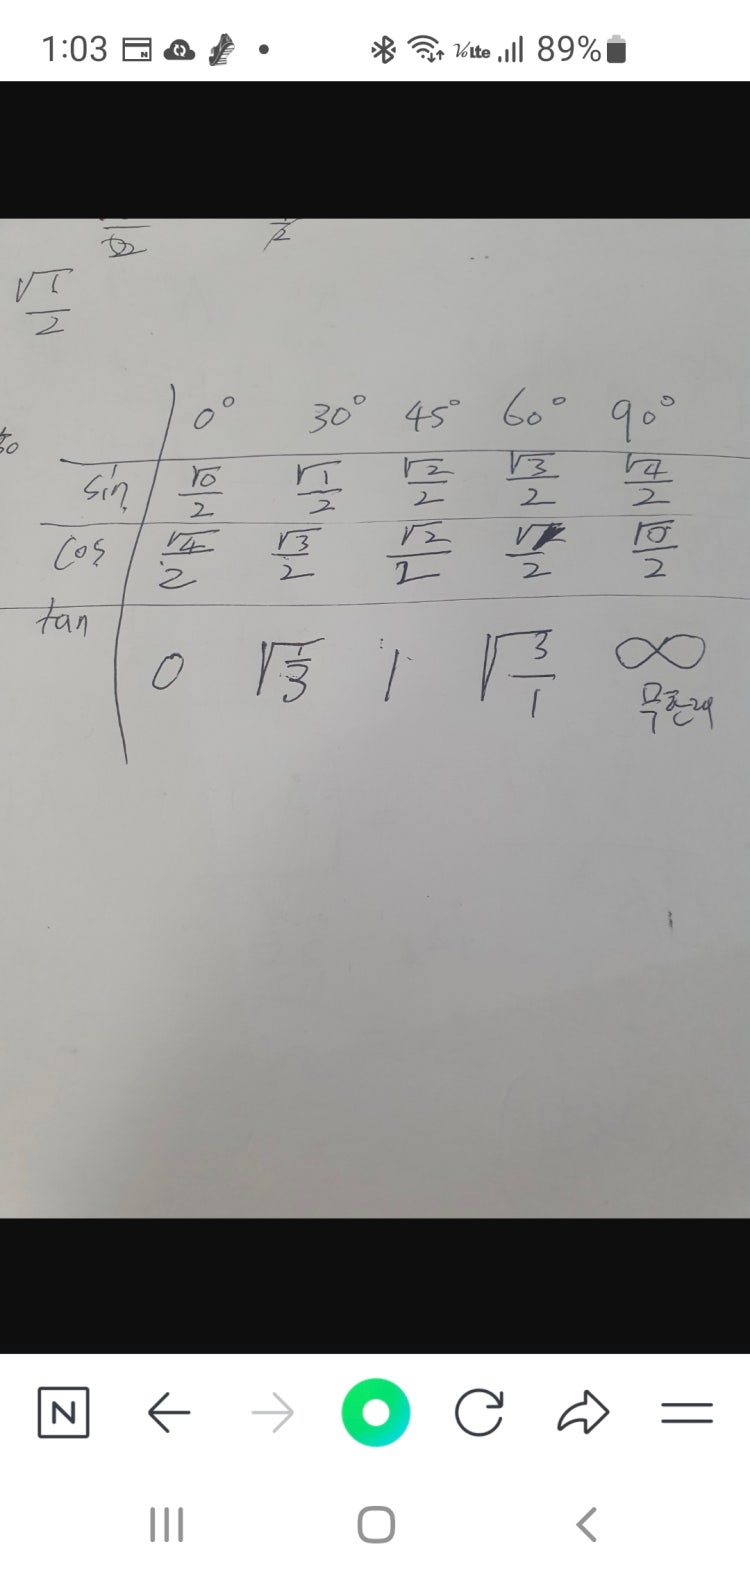 1:03 VoLTE 89%
√1/2
0° 30° 45° 60° 90°
sin √0/2 √1/2 √2/2 √3/2 √4/2
cos √4/2 √3/2 √2/2 √1/2 √0/2
tan 0 √1/3 1 √3/1 ∞
무한대
N